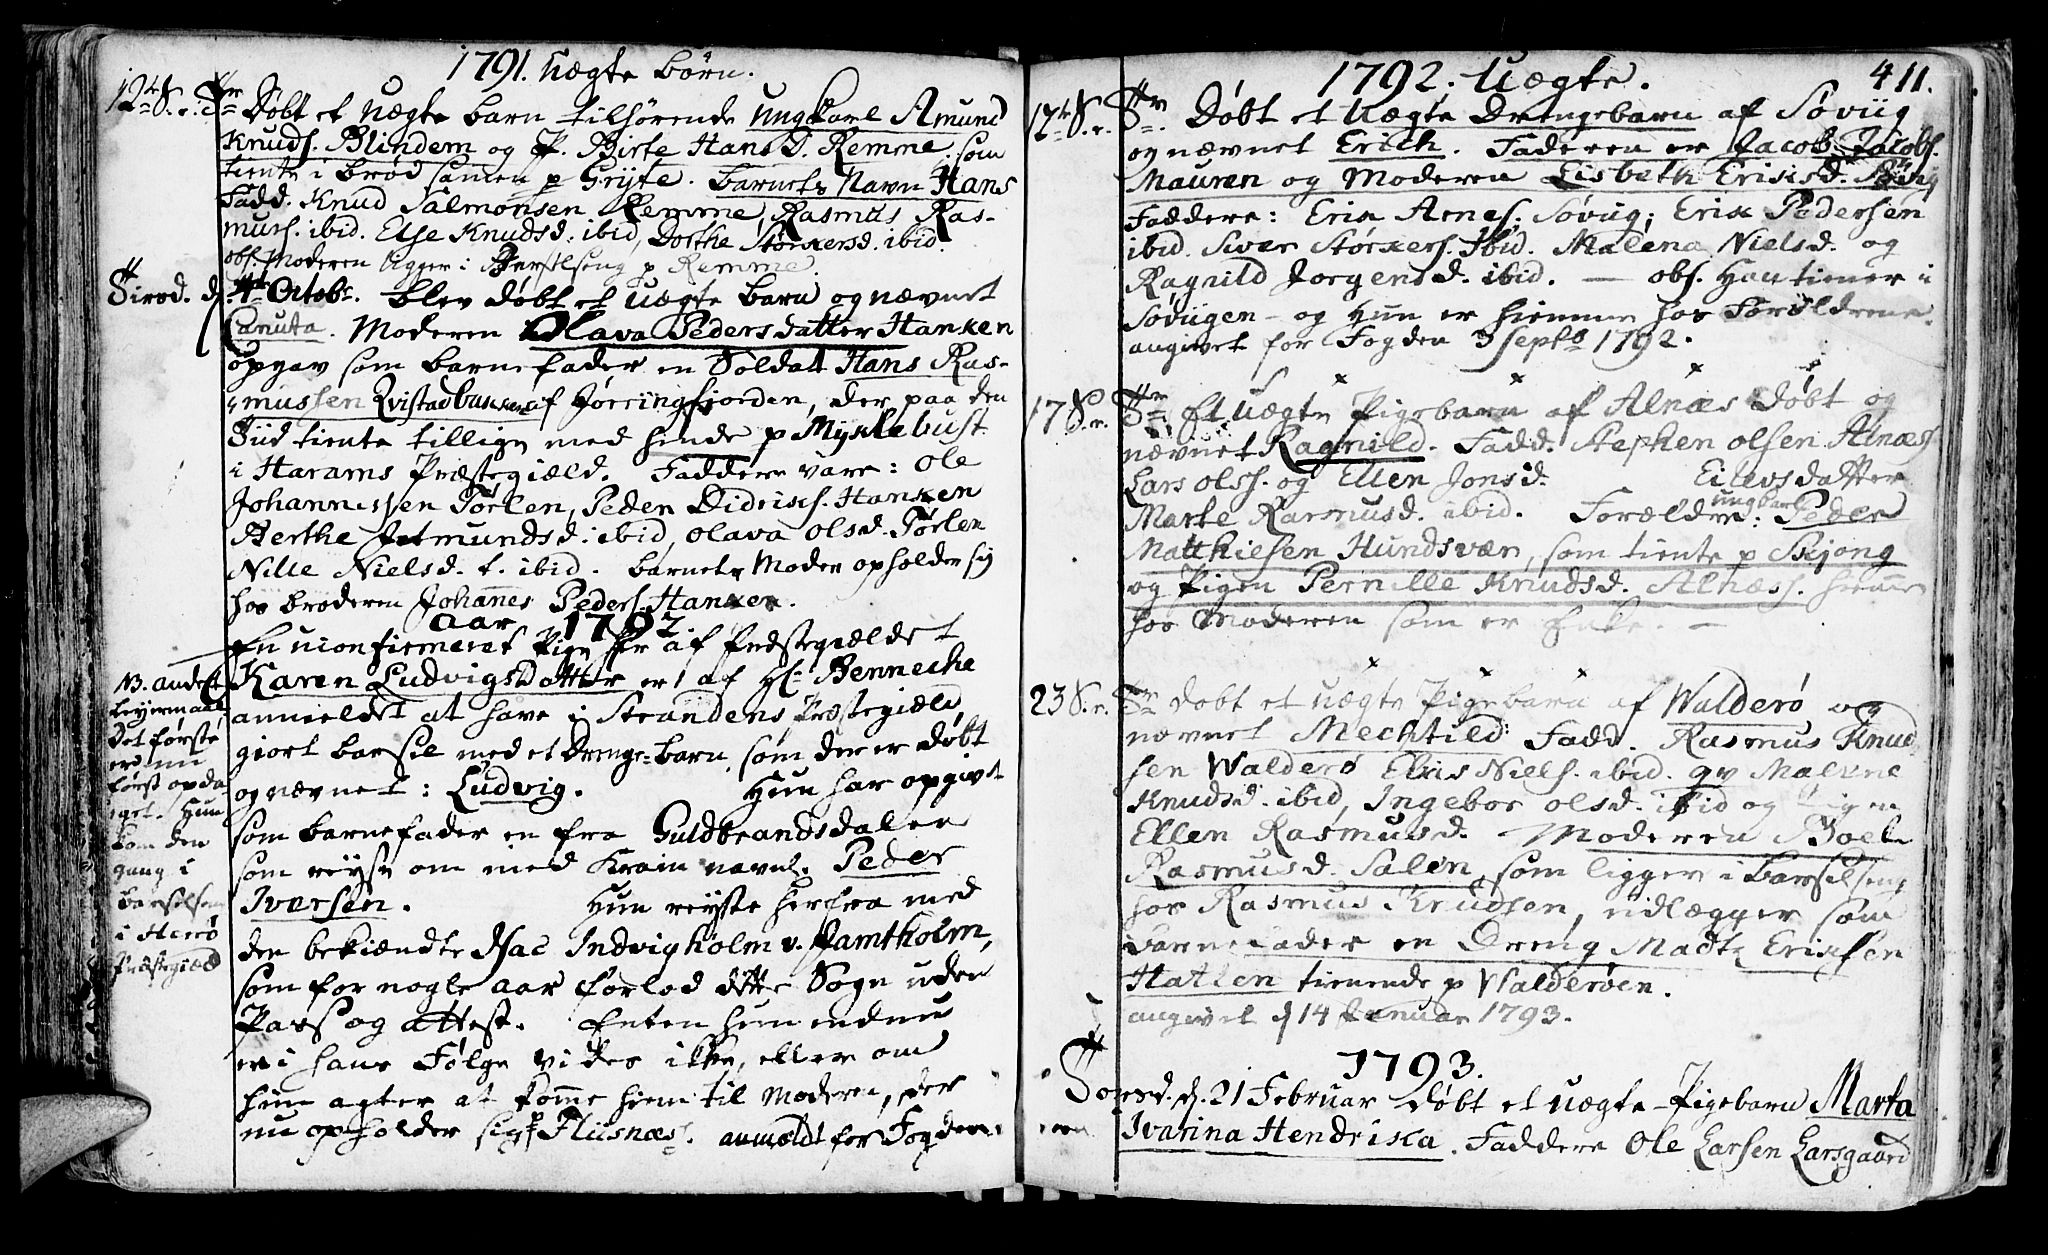 1791. Uægte Børn.
12te S. e. Tr. Døbt et Uægte barn tilhørende Ungkarl Amund
Knuds. Blindem og P. Birte Hansd. Remme, som
tiente i brød samen p Gryte. Barnets Navn Hans
Fadd. Knud Salmonsen Remme, Rasmus Ras-
mus. ibid. Else Knudsd. ibid, Dorthe Størkersd. ibid.
obs. Moderen ligger i Barselseng p Remme.
d. 4de Octobr. blev døbt et Uægte barn og nævnet
Canuta. Moderen Olava Pedersdatter Hanken
opgav som barnefader en Soldat Hans Ras-
mussen Qvistadbakken af Jørringfjorden, der paa den
Tiid tiente tillige med hende p Myklebust
i Harams Præstegield. Faddere vare: Ole
Johannessen Tørlen, Peder Didriks. Hanken
Berthe Jetmundsd. ibid, Olava Olsd. Tørlen
Nille Nielsd. t. ibid. Barnets Moder opholder sig
hos broderen Johannes Peders. Hanken.
Aar 1792
En uconfirmeret Pige her af Præstegieldet
Karen Ludvigsdatter er af Hr. Bennecke
anmeldet at have i Strandens Præstegield
giort barsel med et Drenge-barn, som der er døbt
og nævnet: Ludvig. Hun har opgivet
som barnefader en fra Guldbrandsdalen
som reyste om med Kram navnl. Peder
Iversen. Hun reyste herfra med
den bekiendte Isac Indvigholm v. Jamtholm,
som for nogle aar forlod dette Sogn uden
Pass og attest. Enten hun endnu
er i hans Følge vides ikke, eller om
hun agter at komme hiem til Moderen, der
nu opholder sig p Fliisnæs. anmeldt for Fogden.
NB. andet
Leyermaal
Det første
er nu
først opda-
get. Hun
kom den
gang i
barselseng
i Herø
Præstegield
1792. Uægte. 411.
17de S. e. Tr. Døbt et Uægte Drengebarn af Søviig
og nævnet Erich. Faderen er Jacob Jacobs.
Mauren og Moderen Lisbeth Eriksd. Søvig
Faddere: Erik Arnes. Søvug; Erik Pedersen
ibid. Siver Størkers. ibid. Malena Nielsd. og
Ragnild Jorgensd. ibid. — obs. Han tiener i
Søviigen - og Hun er hiemme hos Forældrene.
angivet for Fogden 3 Septbr 1792.
17 S. e. Tr. Et uægte Pigebarn af Alnæs døbt og
nævnet Ragnild. Fadd. Stephen Olsen Alnæs
Lars Olss. og Ellen Jonsd. Eilevsdatter
Marte Rasmusd. ibid. Forældre: ungkarl Peder
Matthiesen Hundsvær, som tiente p Skjong
og Pigen Pernille Knudsd. Alnæs. hiemme
hos Moderen som er Enke. —
23 S. e. Tr. døbt et uægte Pigebarn af Walderø og
nævnet Mechtild: Fadd. Rasmus Knud
sen Walderø Elias Niels. ibid. qv Malene
Knudsd. ibid, Ingebor Olsd. ibid og Pigen
Ellen Rasmusd. Moderen Boel
Rasmusd. Salen, som ligger i Barselseng
hos Rasmus Knudsen, udlægger som
Barnefader en Dreng Madtz Eriksen
Hatlen tienende p Walderøen.
angivet d 14 Januar 1793.
1793.
Torsd. d. 21 Februar døbt et uægte-Pigebarn Marta
Ivarina Hendrika. Faddere Ole Larsen Larsgaard